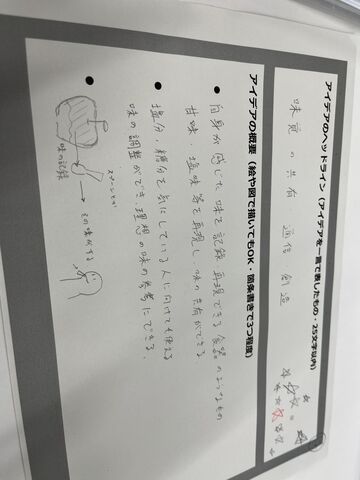 アイデアのヘッドライン（アイデアを一言で表したもの・25文字以内）
味覚の共有 通信 創造
アイデアの概要（絵や図で描いてもOK・箇条書きで3つ程度）
● 自身が感じた味を記録、再現できる食器のようなもの
甘味、塩味等を再現し、味の共有ができる
● 塩分、糖分を気にしている人に向けても使える
味の調整ができ、理想の味の参考にできる。
●
味の記録
スプーンとか
その味がする